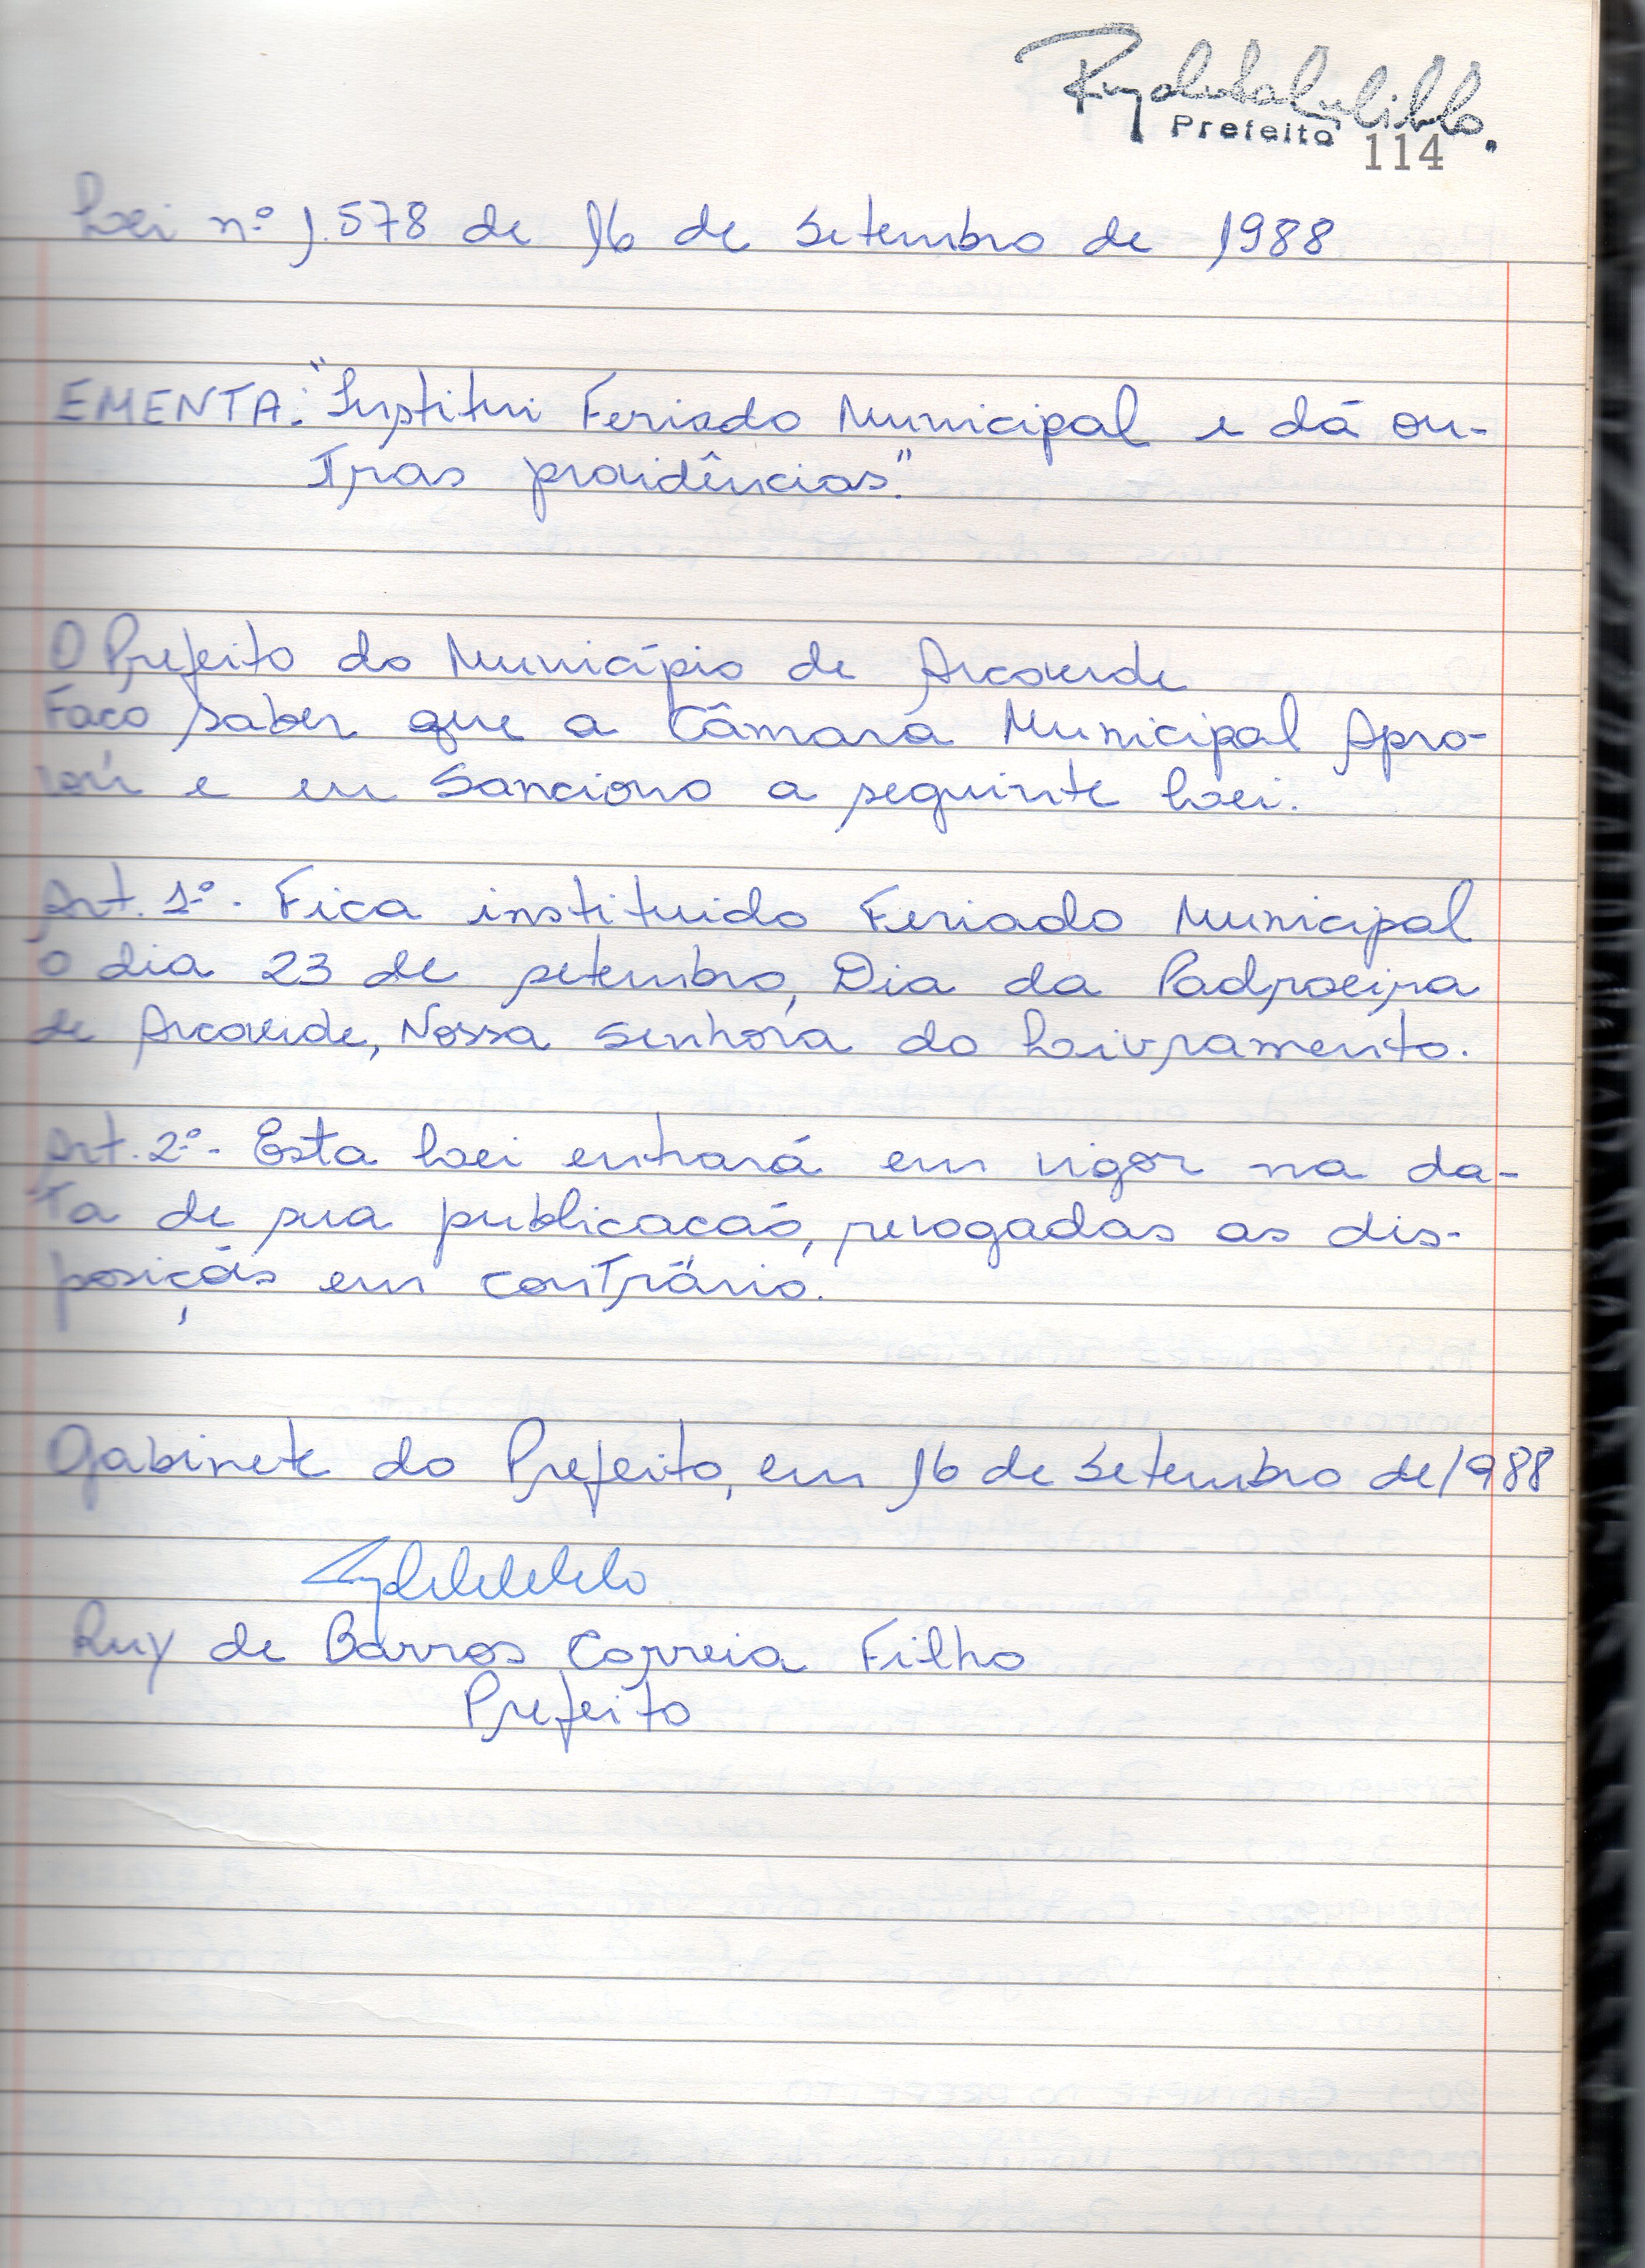 Prefeito
114
Lei nº 1.578 de 16 de Setembro de 1988
EMENTA: "Institui Feriado Municipal e dá ou-
tras providências."
O Prefeito do Município de Arcoverde
Faço saber que a Câmara Municipal Apro-
vou e eu Sanciono a seguinte Lei.
Art. 1º - Fica instituido Feriado Municipal
o dia 23 de setembro, Dia da Padroeira
de Arcoverde, Nossa Senhora do Livramento.
Art. 2º - Esta Lei entrará em vigor na da-
ta de sua publicacaó, revogadas as dis-
posições em contrário.
Gabinete do Prefeito, em 16 de Setembro de 1988
Ruy de Barros Correia Filho
Prefeito